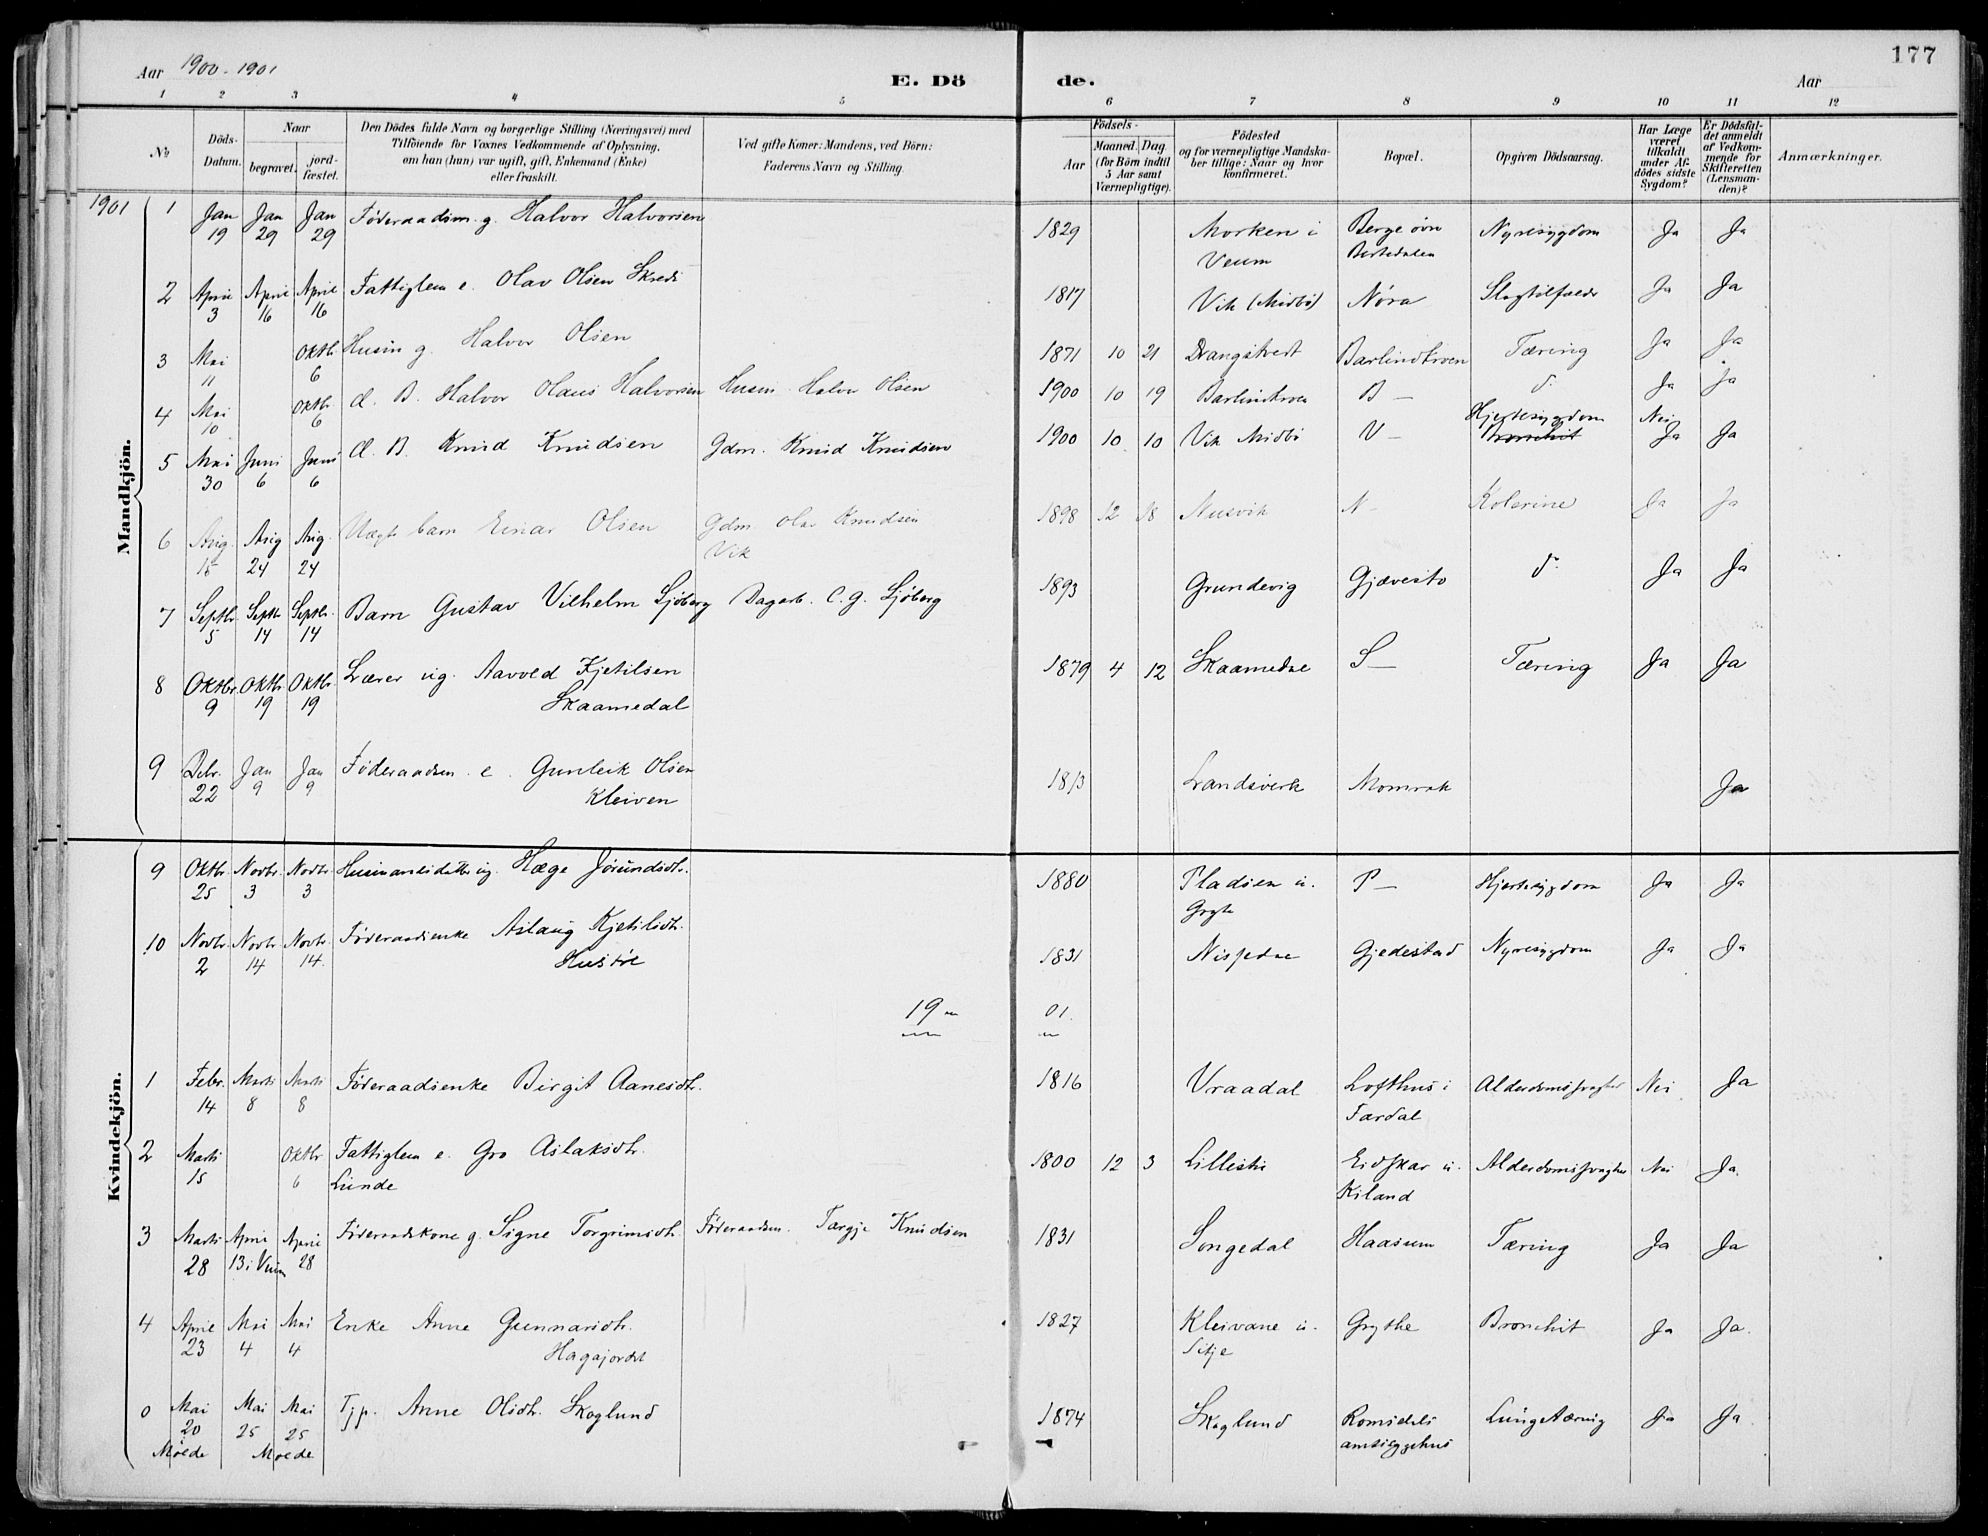 177
Aar 1900-1901
E. Dö de.
Aar
1 2 3 4 5 6 7 8 9 10 11 12
№
Döds-Datum.
Naar
begravet.
jord-fæstet.
Den Dödes fulde Navn og borgerlige Stilling (Næringsvei) med
Tilföiende for Voxnes Vedkommende af Oplysning,
om han (hun) var ugift, gift, Enkemand (Enke)
eller fraskilt.
Ved gifte Koner: Mandens, ved Börn:
Faderens Navn og Stilling.
Födsels-
Aar
Maaned. Dag
(for Börn indtil
5 Aar samt
Værnepligtige).
Födested
og for værnepligtige Mandska-
ber tillige: Naar og hvor
konfirmeret.
Bopæl.
Opgiven Dödsaarsag.
Har Læge
været
tilkaldt
under Af-
dödes sidste
Sygdom?
Er Dödsfal-
det anmeldt
af Vedkom-
mende for
Skifteretten
(Lensman-
den)?
Anmærkninger.
Mandkjön.
1901
1 Jan 19 Jan 29 Jan 29 Föderaadsm. g. Halvor Halvorsen 1829 Morken i Veum Berge övre Nyresygdom Ja Ja
2 April 3 April 16 April 16 Fattiglem e. Olav Olsen Skredi 1817 Vik (Midbö) Nöra Slagtilfælde Ja Ja
3 Mai 11 Oktbr 6 Husm g. Halvor Olsen 1871 10 21 Drangstvedt Barlindkroen Tæring Ja Ja
4 Mai 10 Oktbr 6 d. B. Halvor Olaus Halvorsen Husm. Halvor Olsen 1900 10 19 Barlindkroen B— d. Ja Ja
5 Mai 30 Juni 6 Juni 6 d. B. Knud Knudsen Gdm. Knud Knudsen 1900 10 10 Vik Midbö V— Hjertesygdom Bronchit Nei Ja Ja
6 Aug. 15 Aug 24 Aug. 24 Uægte barn Einar Olsen Gdm. Olav Knudsen Vik 1898 12 18 Nusvik N— Kolerine Ja Ja
7 Septbr. 5 Septbr 14 Septbr. 14 Barn Gustav Vilhelm Sjöberg Dagarb. C. G. Sjöberg 1893 Grundevig Gjævesto d. Ja Ja
8 Oktbr. 9 Oktbr 19 Oktbr 19 Lærer ug. Aavold Kjetilsen Skaamedal 1879 4 12 Skaamedal S— Tæring Ja Ja
9 Debr. 22 Jan 9 Jan 9 Föderaadsm. e. Gunleik Olsen Kleiven 1813 Landsverk Momrak Ja
Kvindekjön.
9 Oktbr. 25 Novbr. 3 Novbr. 3 Husmandsdatter ug. Hæge Jörundsdtr. 1880 Pladsen u. Gryte P— Hjertesygdom Ja Ja
10 Novbr. 2 Novbr 14 Novbr. 14. Föderaadsenke Aslaug Kjetilsdtr. Hustöl 1831 Nisjedal Gjedestad Nyresygdom Ja Ja
19 01.
1 Febr. 14 Marts 8 Marts 8 Föderaadsenke Birgit Aanesdtr. 1816 Vraadal Lofthus i Fardal Alderdomssvaghed Nei Ja
2 Marts 15 Oktbr 6 Fattiglem e. Gro Aslaksdtr. Lunde 1800 12 3 Lillestu Eidskar u. Kiland Alderdomssvaghed Nei Ja.
3 Marts 28 April 13 i Veum April 28 Föderaadskone g. Signe Torgrimsdtr. Föderaadsm. Targje Knudsen 1831 Songedal Haasum Tæring Ja Ja
4 April 23 Mai 4 Mai 4 Enke Anne Gunnarsdtr. Hagajordet 1827 Kleivane u. Sitje Grythe Bronchit Ja Ja.
0 Mai 20 Molde Mai 25 Mai 25 Molde Tjp. Anne Olsdtr. Skoglund 1874 Skoglund Romsdals amtssygehus Lungetæring Ja Ja